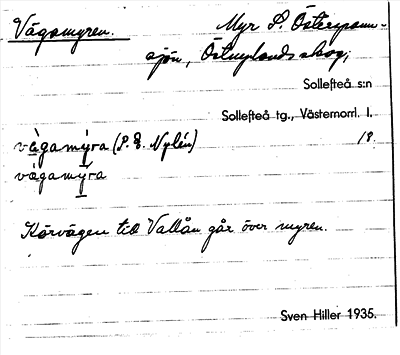 Vågamyren. Myr S. Österspann-
sjön, Östnylands skog,
Sollefteå s:n
Sollefteå tg., Västernorrl. l.
vàgamýra (P. E. Nylén) 18.
vàgamýra
Körvägen till Vallån går över myren.
Sven Hiller 1935.